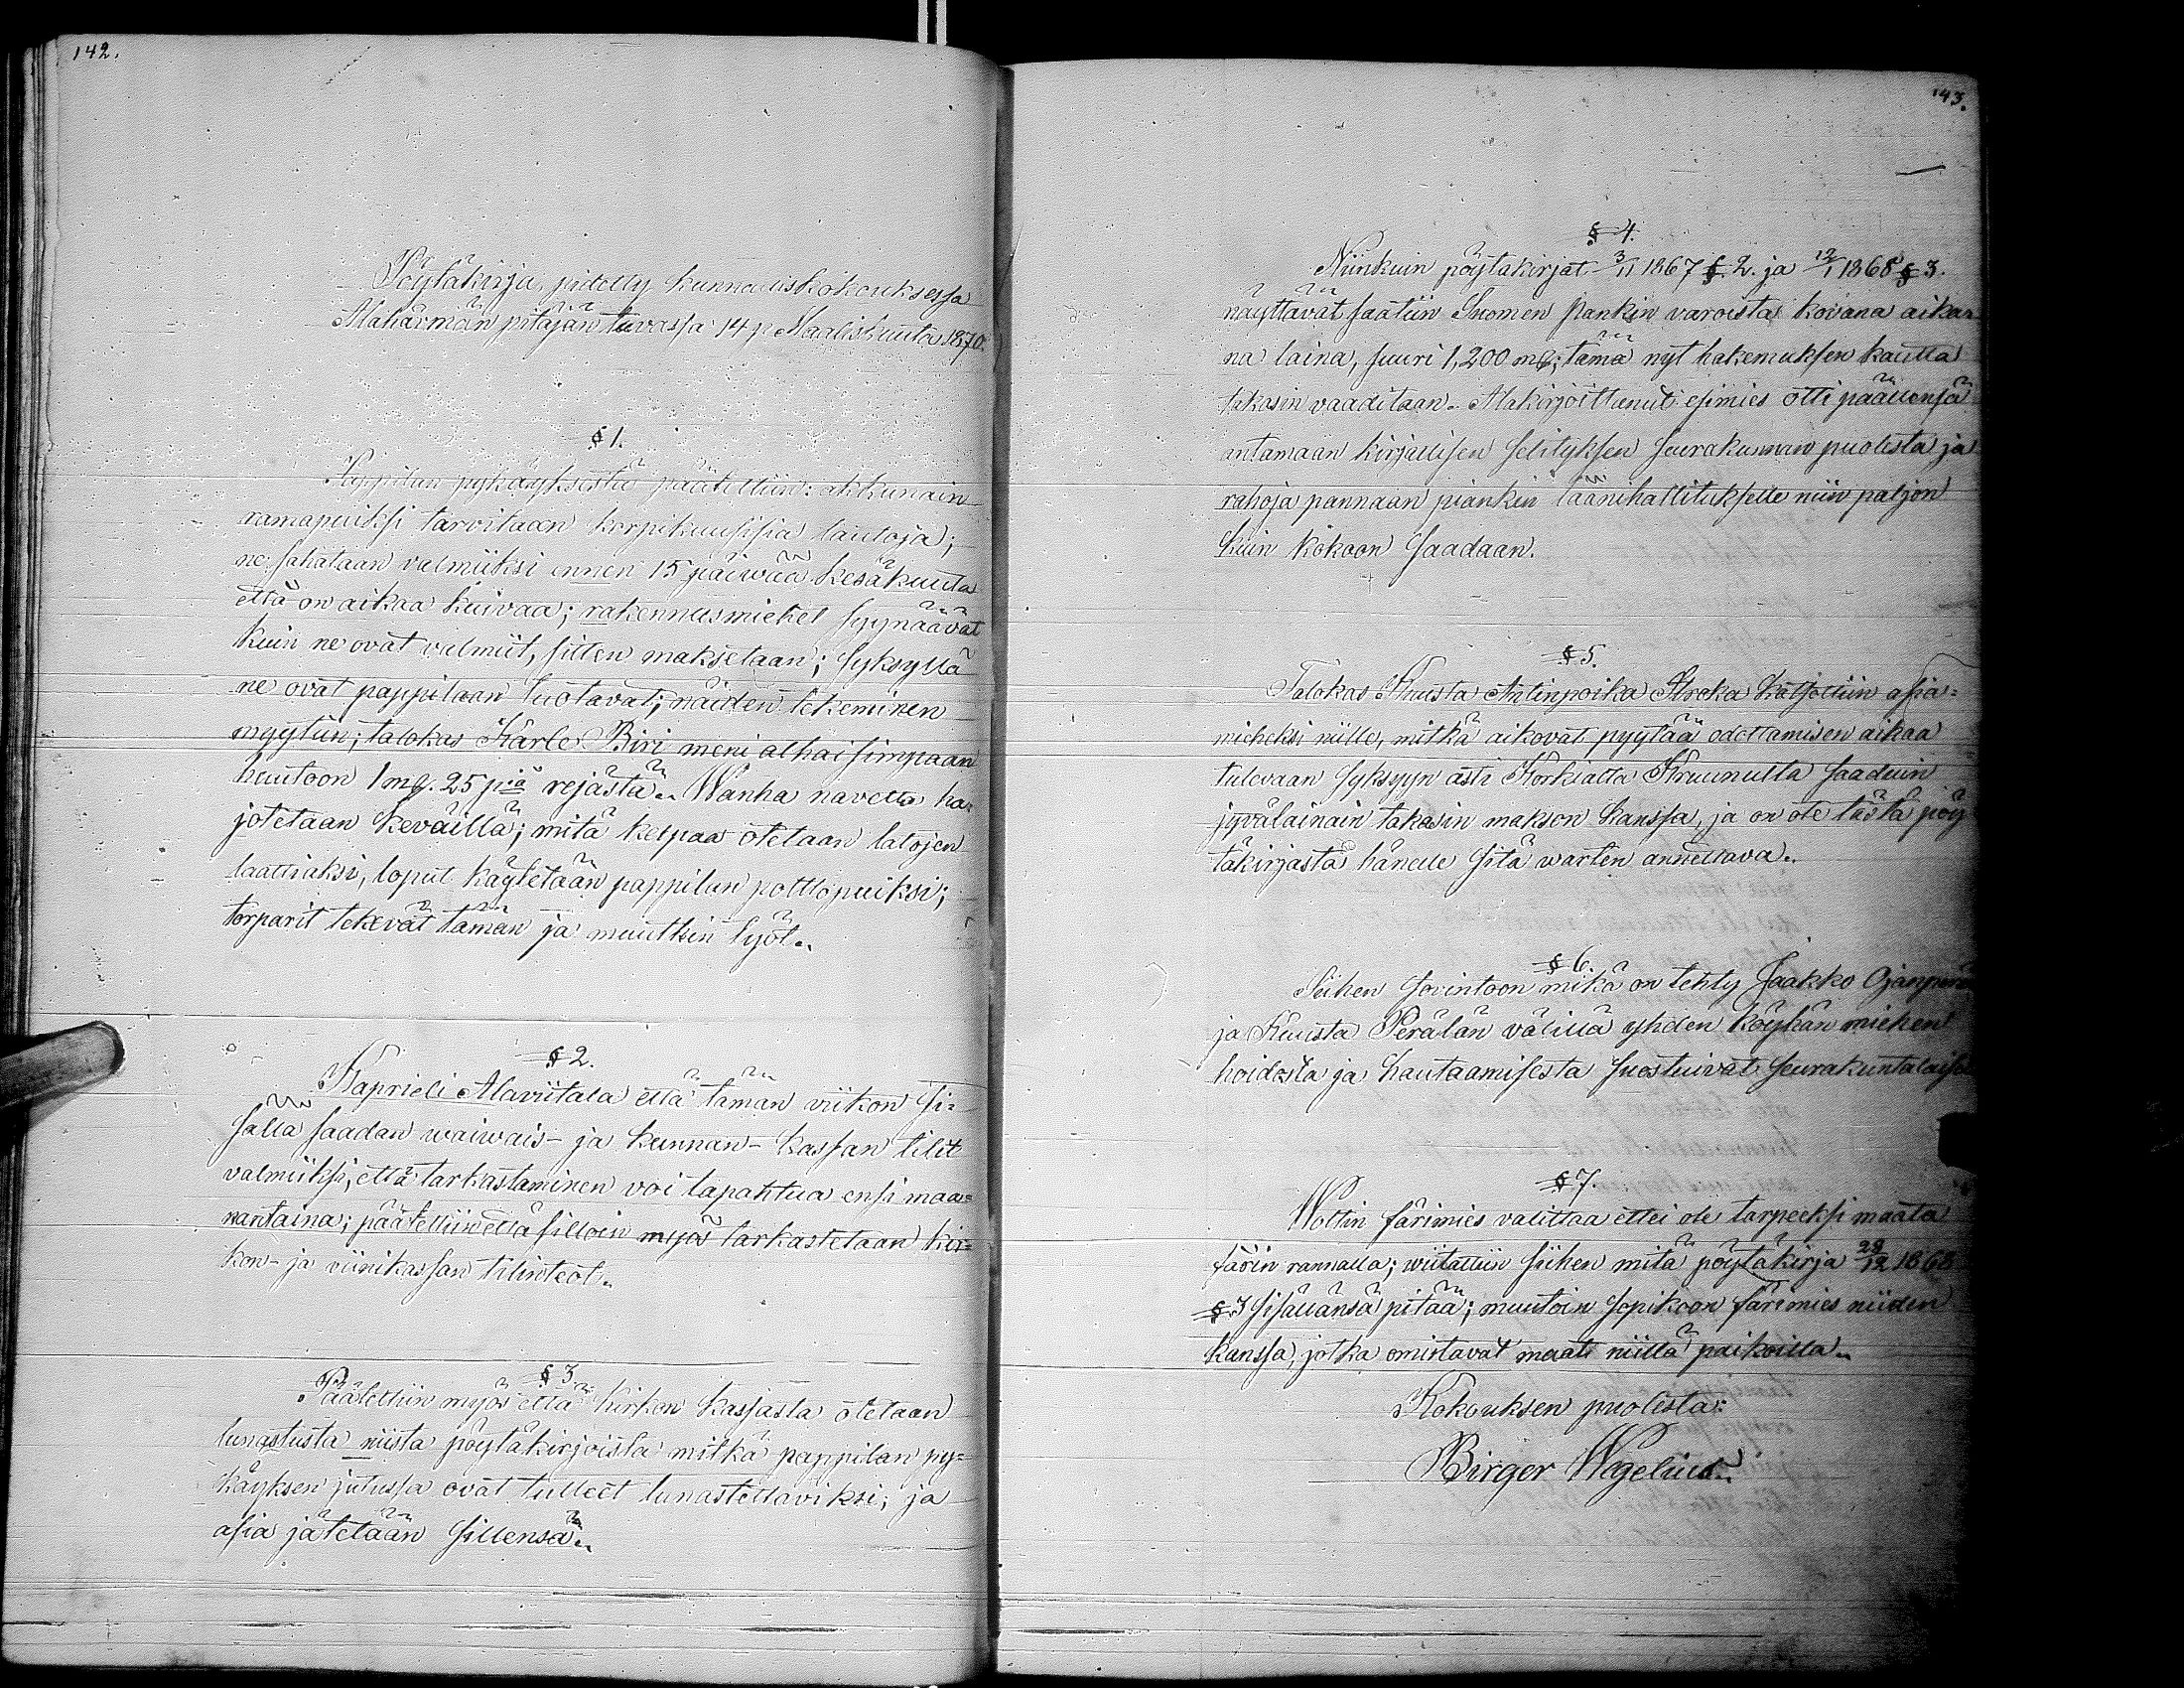 142.
Pöytäkirja, pidetty kunnalliskokouksessa
Alahärmän pitäjän tuvassa 14 p Maaliskuuta 1870.
§ 1.
Pappilan pykäyksestä päätettiin: akkunain
ramapuiksi tarvitaan korpikuusisia lautoja;
ne sahataan valmiiksi ennen 15 päiwää Kesäkuuta
että on aikaa kuivaa; rakennusmiehet syynäävät
kuin ne ovat valmiit, sitten maksetaan; syksyllä
ne ovat pappilaan tuotavat; näiden tekeminen
myytiin; talokas Kärle Biri meni alhaisimpaan
huutoon 1 mq. 25 piä rejästä. Wanha navetta ha-
jotetaan keväillä; mitä kelpaa otetaan latojen
laattiaksi, loput käytetään pappilan polttopuiksi;
torparit tekevät tämän ja muutkin työt.
§ 2.
Kaprieli Alaviitala että tämän viikon si-
sällä saadan waiwais- ja kunnan- kassan tilit
valmiiksi, että tarkastaminen voi tapahtua ensi maa-
nantaina; päätettiin että silloin myös tarkastetaan kir-
kon- ja viinikassan tilinteöt.
§ 3
Päätettiin myös että Kirkon kassasta otetaan
lunastusta niista pöytäkirjoista mitkä pappilan py-
käyksen jutussa ovat tulleet lunastettaviksi; ja
asia jätetään sillensä.
143.
§ 4.
Niinkuin pöytäkirjat 3/11 1867 § 2. ja 12/1 1868 § 3.
näyttävät saatiin Suomen Pankin varoista kovana aika-
na laina, suuri 1,200 mq; tämä nyt hakemuksen kautta
takasin vaaditaan. Alakirjoittanut esimies otti päällensä
antamaan kirjallisen selityksen seurakunnan puolesta ja
rahoja pannaan piankin läänihallitukselle niin paljon
kuin kokoon saadaan.
§ 5.
Talokas Kuusta Antinpoika Kroka katsottiin asia-
mieheksi niille, mitkä aikovat pyytää odottamisen aikaa
tulevaan syksyyn asti Korkialta Kruunulta saaduin
jyvälainain takasin makson kanssa, ja on ote tästä pöy
täkirjasta hänelle sitä warten annettava.
§ 6.
Siihen sovintoon mikä on tehty Jaakko Ojanperä
ja Kuusta Perälän välillä yhden köyhän miehen
hoidosta ja hautaamisesta suostuivat seurakuntalaiset
§ 7.
Woltin färimies valittaa ettei ole tarpeeksi maata
färin rannalla; wiitattiin siihen mitä pöytäkirja 28/12 1868
§ 3 sisällänsä pitää; muutoin sopikoon färimies niiden
kanssa, jotka omistavat maati niillä paikoilla.
Kokouksen puolesta:
Birger Wegelius.